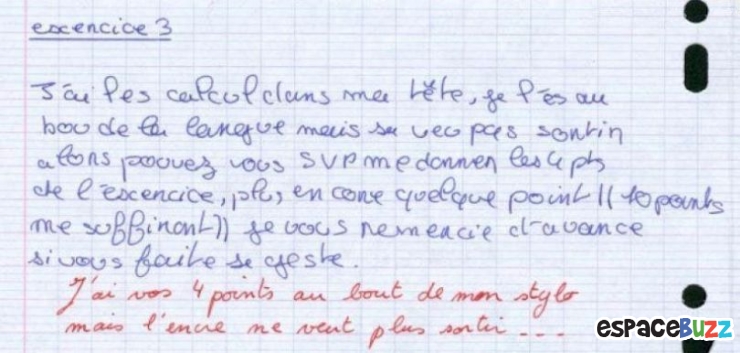 excencice 3
J'ai les calcul dans ma tête, je l'es au
bou de la langue mais sa veu pas sontin
alons pouvez vous SVP me donnen les 4 pts
de l'excencice, plus encone quelque point (( 10 points
me suffinont)) je vous nemencie d'avance
si vous faite se geste.
J'ai vos 4 points au bout de mon stylo
mais l'encre ne veut plus sortir ...
espaceBuzz